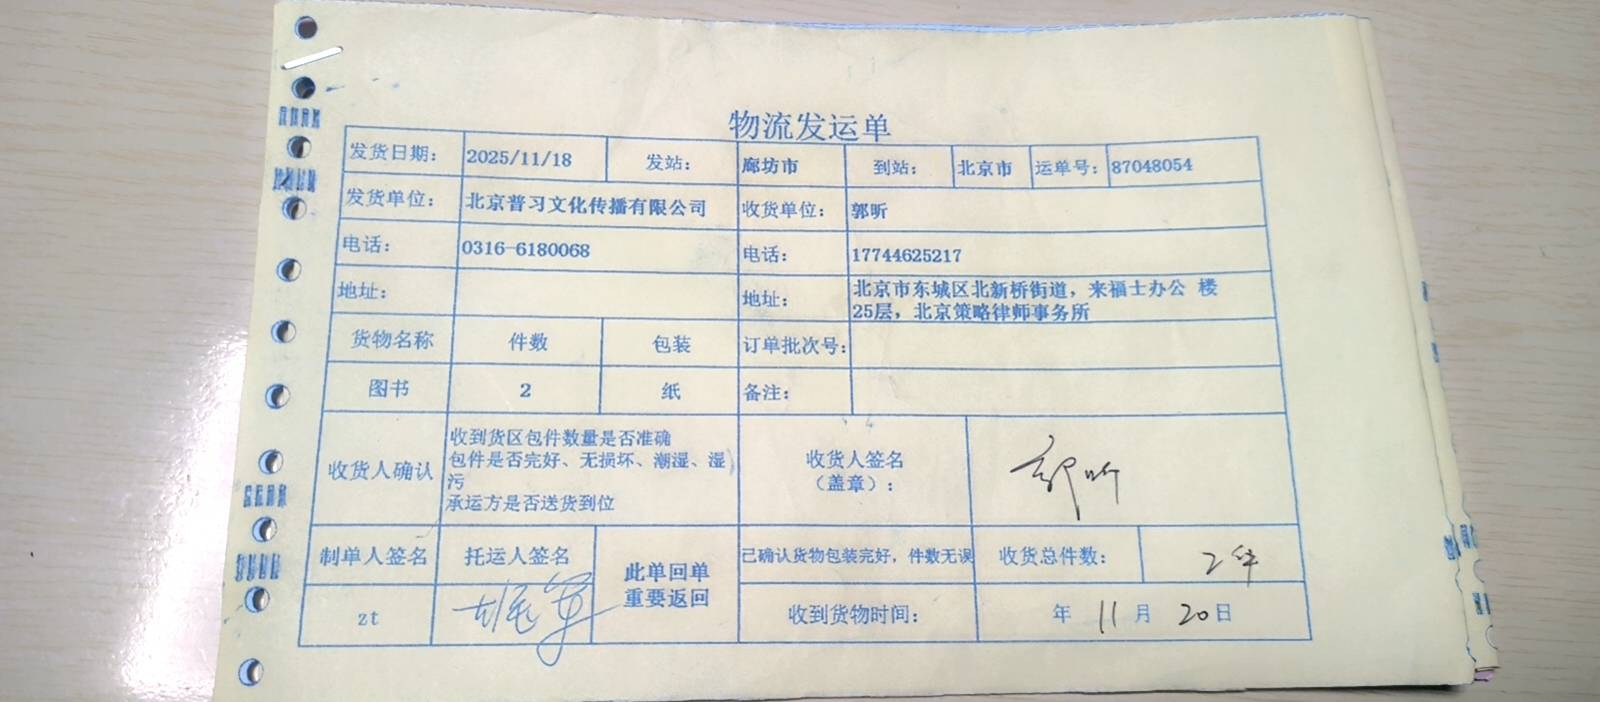 物流发运单
发货日期： 2025/11/18 发站： 廊坊市 到站： 北京市 运单号： 87048054
发货单位： 北京普习文化传播有限公司 收货单位： 郭昕
电话： 0316-6180068 电话： 17744625217
地址： 地址： 北京市东城区北新桥街道，来福士办公 楼
25层，北京策略律师事务所
货物名称 件数 包装 订单批次号：
图书 2 纸 备注：
收货人确认
收到货区包件数量是否准确
包件是否完好、无损坏、潮湿、湿
污
承运方是否送货到位
收货人签名
（盖章）：
郭昕
制单人签名 托运人签名
此单回单
重要返回
已确认货物包装完好，件数无误 收货总件数： 2件
zt
收到货物时间： 年 11 月 20 日